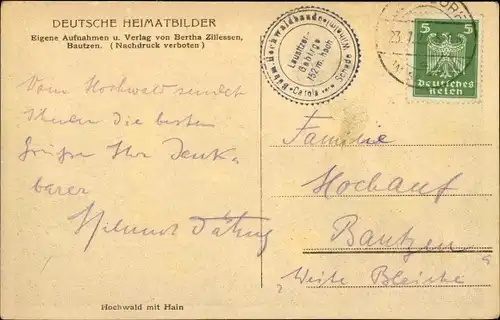 DEUTSCHE HEIMATBILDER
Eigene Aufnahmen u. Verlag von Bertha Zillessen,
Bautzen. (Nachdruck verboten)
Lausitzer-
Gebirge
752 m. hoch
23.
5 5
Deutsches
Reich
Vom Hochwald sendet
Ihnen die besten
Grüße Ihr dank-
barer
Helmut
Familie
Hochauf
Bautzen
Weite Bleiche
Hochwald mit Hain